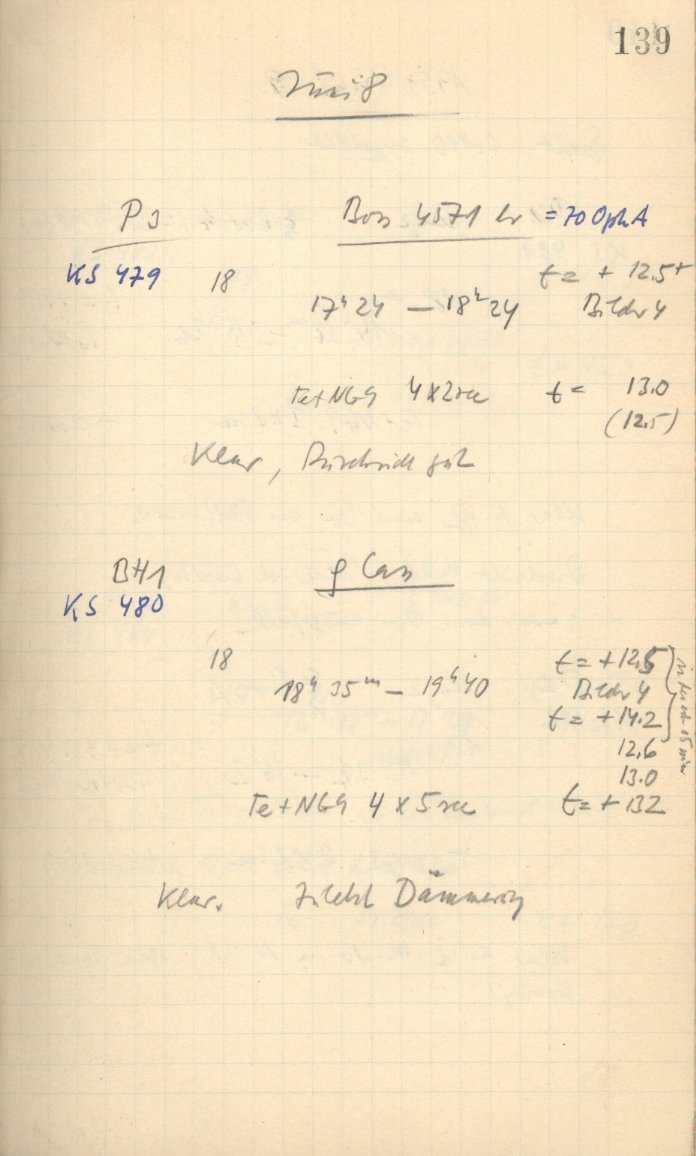 139
Juni 8
P3 Boss 4571 br = 70 Oph A
KS 479 18 t = + 12.5
17h 24 — 18h 24 Bilder 4
Te + NG9 4 x 2 sec t = 13.0
(12.5)
Klar, Durchsicht gut
BH1 ρ Cass
KS 480
18 t = + 12.5
18h 35m — 19h 40 Bilder 4
t = + 14.2
12.6
13.0
Te + NG9 4 x 5 sec t = + 13.2
15 min
Klar. Zuletzt Dämmerung